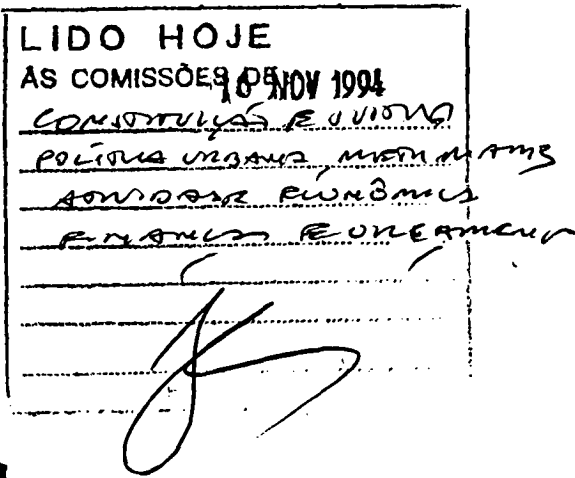 LIDO HOJE
AS COMISSÕES DE 16 NOV 1994
CONSTITUIÇÃO E JUSTIÇA
POLÍTICA URBANA, METR. M. AMB
ATIVIDADE ECONÔMICA
FINANÇAS E ORÇAMENTO